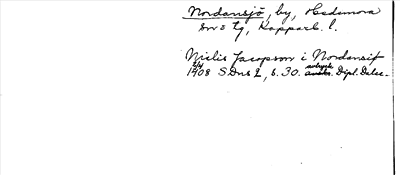 Nordansjö, by, Hedemora
sn o tg, Kopparb. l.
Nielis Jacopson i Nordansiö
1408 SDns 2, s. 30. avtryck Dipl. Dalec.